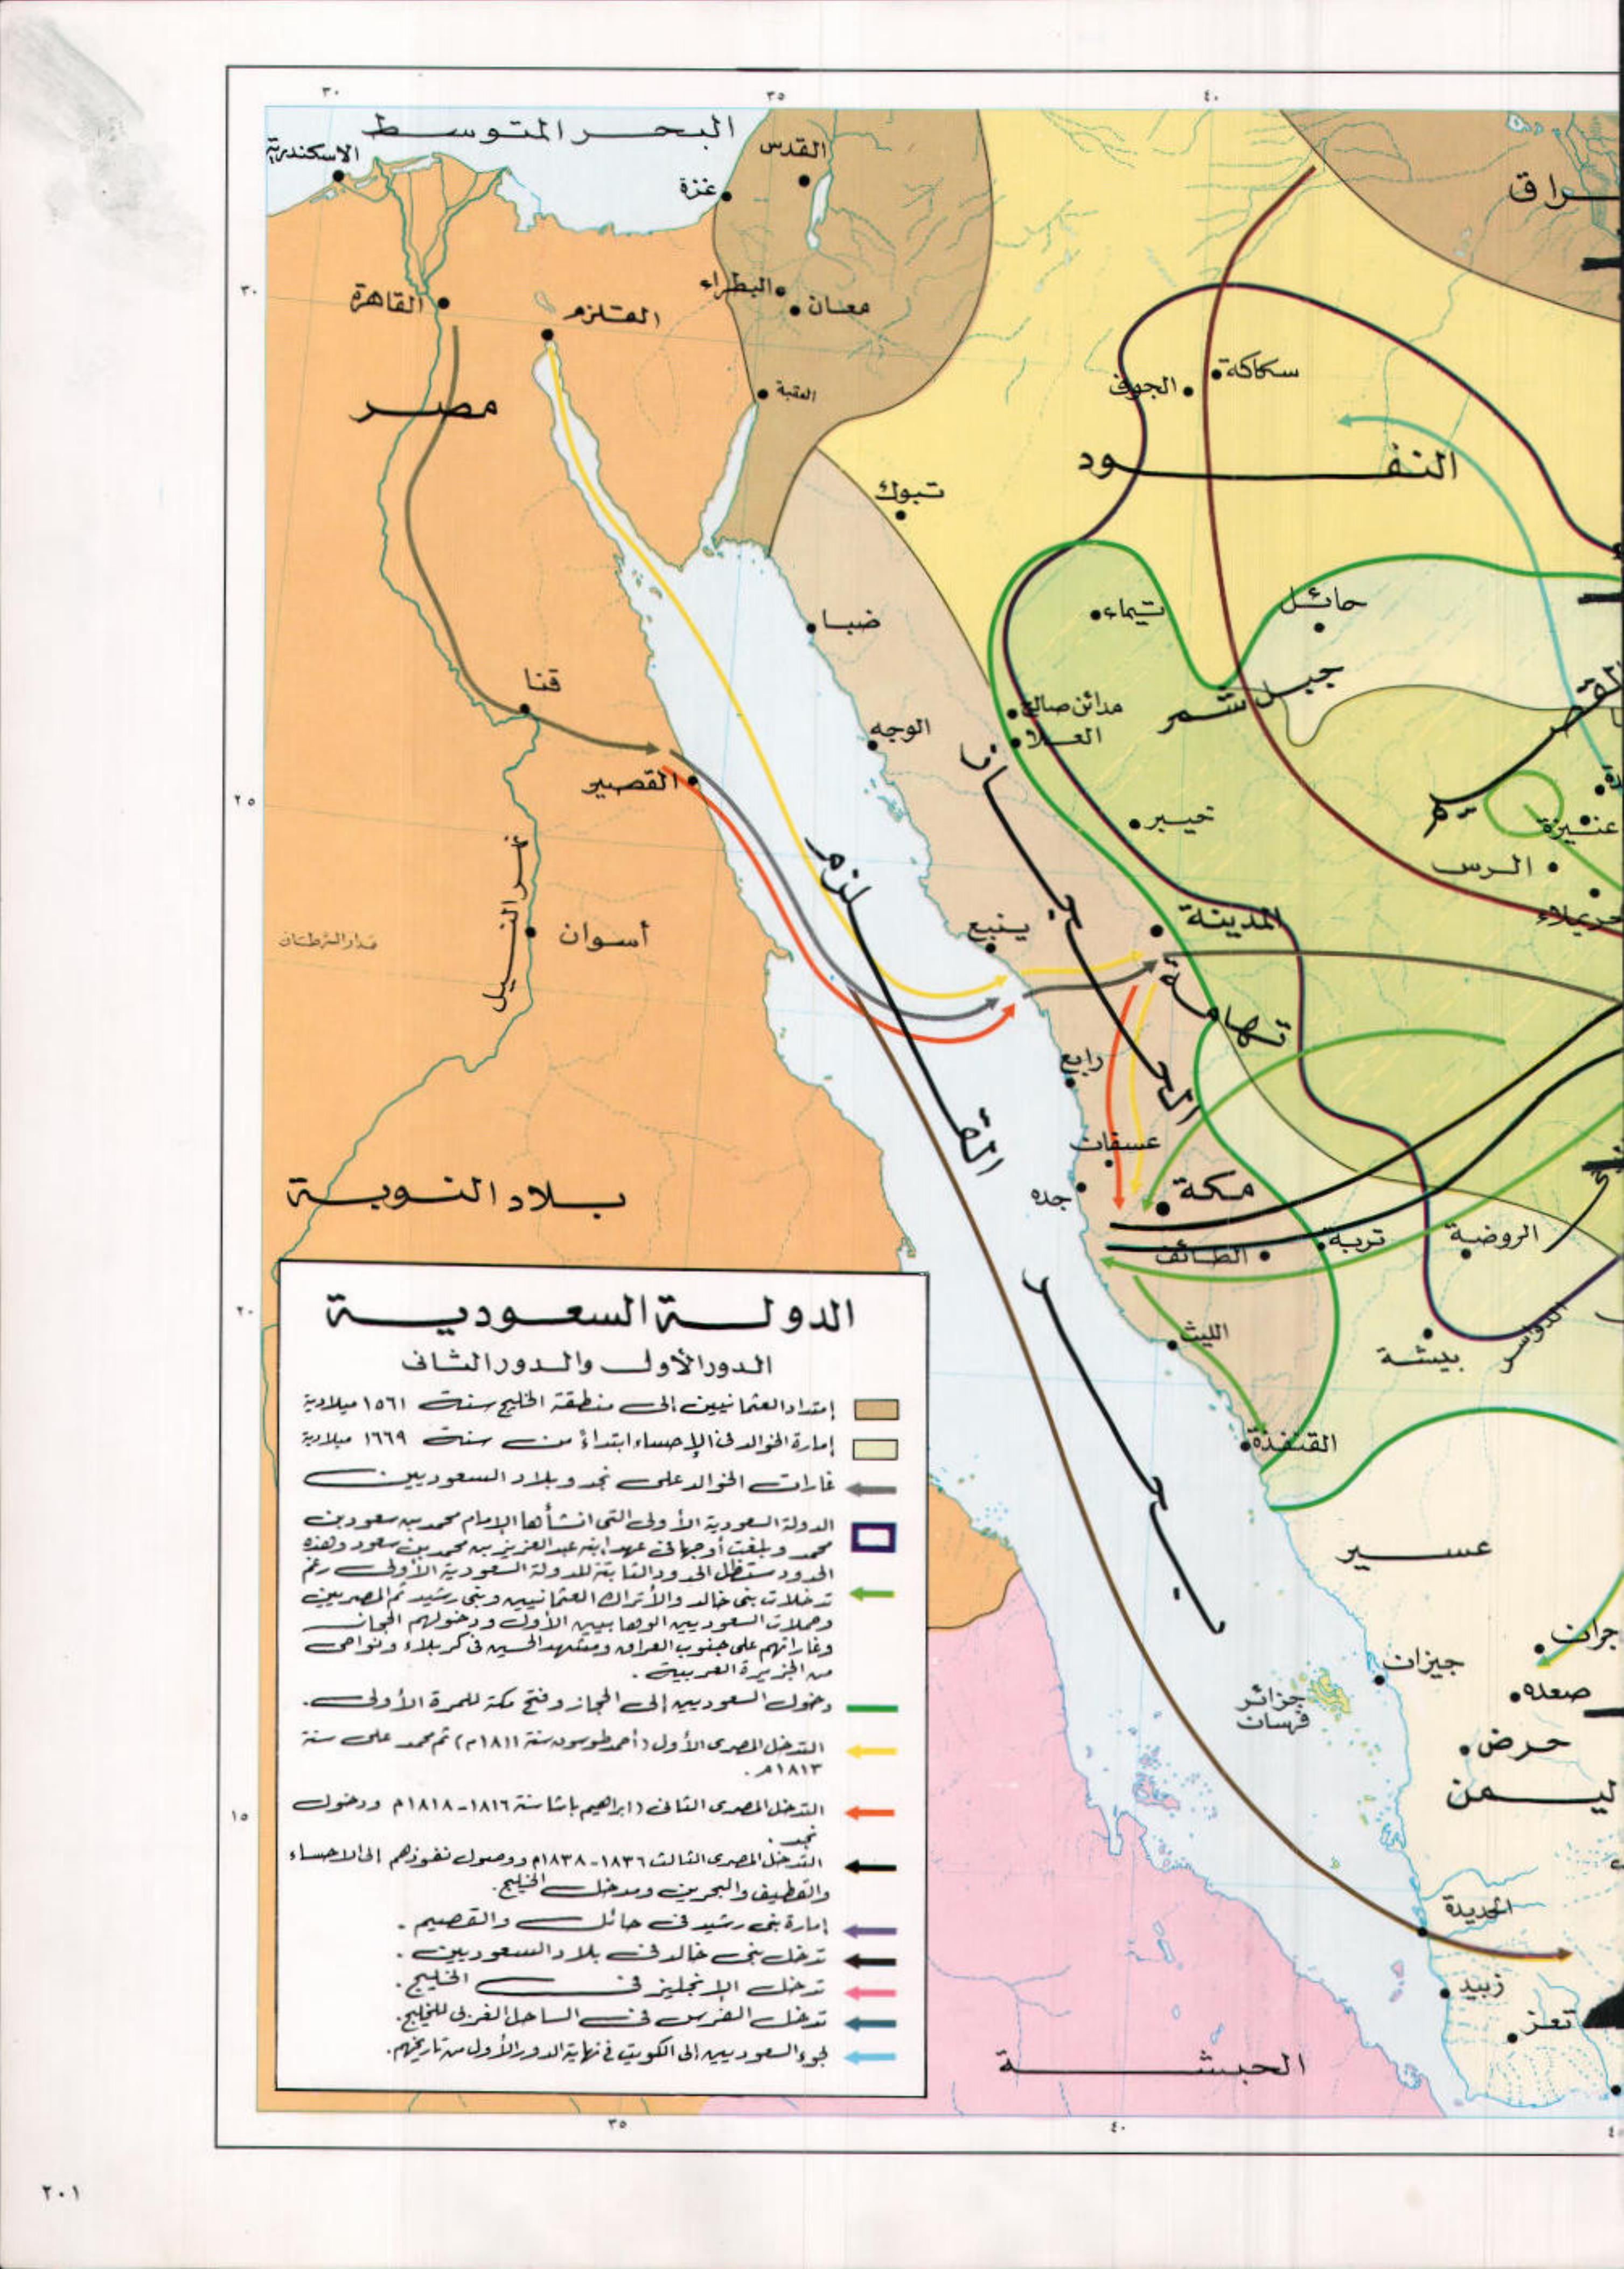 ٣٠
٣٥
٤٠
البحر المتوسط
الاسكندرية
القدس
غزة
ـراق
٣٠
القاهرة
القلزم
البطراء
معان
مصر
العقبة
سكاكة
الجوف
النفود
تبوك
تيماء
حائل
ضبا
قنا
مدائن صالح
العلا
جبل شمر
الوجه
القصيم
القصير
٢٥
خيبر
عنيزة
الرس
حريملاء
نهر النيل
أسوان
مدار السرطان
ينبع
المدينة
تهامة
الحجاز
رابغ
عسفان
جده
مكة
الطائف
تربة
الروضة
بلاد النوبة
بحر القلزم
٢٠
الليث
بيشة
الدواسر
القنفذة
عسير
الدولة السعودية
الدور الأول والدور الثاني
إمتداد العثمانيين إلى منطقة الخليج سنة ١٥٦١ ميلادية
إمارة الخوالد في الإحساء ابتداءً من سنة ١٦٦٩ ميلادية
غارات الخوالد على نجد وبلاد السعوديين
الدولة السعودية الأولى التي انشأها الإمام محمد بن سعود بن
محمد وبلغت أوجها في عهد ابنه عبد العزيز بن محمد بن سعود وهذه
الحدود ستظل الحدود الثابتة للدولة السعودية الأولى رغم
تدخلات بني خالد والأتراك العثمانيين وبني رشيد ثم المصريين
وحملات السعوديين الوهابيين الأول ودخولهم الحجاز
وغاراتهم على جنوب العراق ومشهد الحسين في كربلاء ونواحي
من الجزيرة العربية .
دخول السعوديين إلى الحجاز وفتح مكة للمرة الأولى .
التدخل المصري الأول (أحمد طوسون سنة ١٨١١م) ثم محمد علي سنة
١٨١٣م .
التدخل المصري الثاني (ابراهيم باشا سنة ١٨١٦-١٨١٨م ودخول
نجد .
التدخل المصري الثالث ١٨٣٦-١٨٣٨م ووصول نفوذهم إلى الاحساء
والقطيف والبحرين ومدخل الخليج .
إمارة بني رشيد في حائل والقصيم .
تدخل بني خالد في بلاد السعوديين .
تدخل الإنجليز في الخليج .
تدخل الفرس في الساحل الغربي للخليج .
لجوء السعوديين إلى الكويت في نهاية الدور الأول من تاريخهم .
جيزان
ـجران
صعده
جزائر
فرسان
حرض
ليمن
١٥
الحديدة
زبيد
تعز
الحبشة
٣٥
٤٠
٢٠١